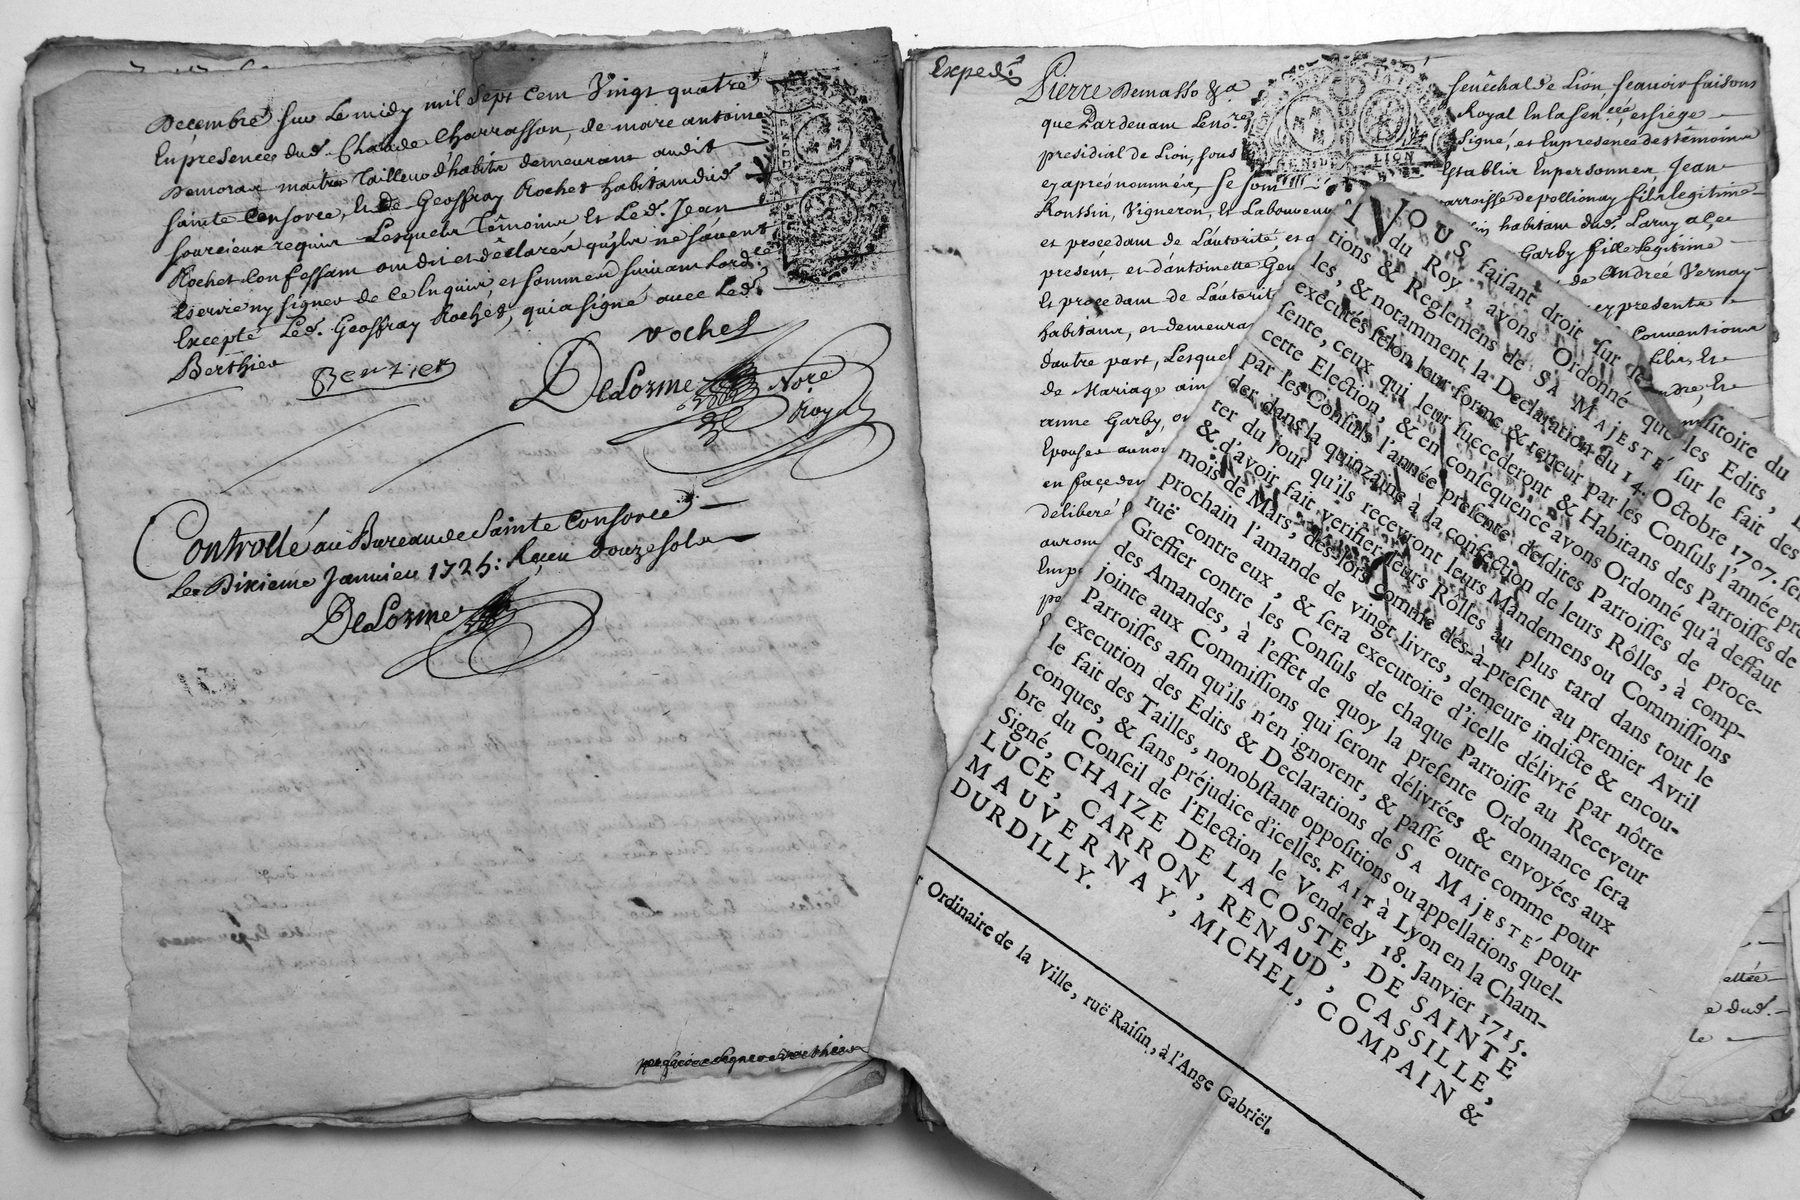 Decembre sur Le midy mil Sept Cem Vingt quatre
En presence dud. Claude Charrasson, de marc antoine
Demorax maitre Tailleur d'habits demeurant audit
Sainte Consorce, et de Geoffray Rochet habitant dud.
sourcieux requis Lesquels Témoins et Led. Jean
Rochet Confessant ont dit et déclarés qu'ils ne savent
Escrire ny signer de ce Enquis, et sommeés suivant Lord.ce
Excepté Led. Geoffray Rochet, qui a signé avec Led.
Berthier
Berthier
rochet
DeLorme
No.re
Royal
Controllé au Bureau de Sainte Consorce
Le Dixieme Janvier 1725: Reçeu douze sols
DeLorme
Exped.
Pierre Demasso &a
Senêchal de Lion, sçavoir faisons
que Pardevant Le no.re
Royal En la Sen.cée, et siége
presidial de Lion, sous
Signé, et En presence des témoins
cy aprés nommés, se son
Establis En personnes Jean
Roussin, Vigneron, Et Laboureur
parroisse de pollionay fils legitime
habitant dud.
et procedant de L'autorité, et a
Garby fille Legitime
present, et d'antoinette
de André Vernay
Et procedant de L'autorité
cy presente
habitans, et demeurant
Conventions
d'autre part, Lesquels
de Mariage ain
anne Garby, on
Epouser
en face de
deliberé
auront
LION
NOUS faisant droit sur de sitoire du
du Roy, avons Ordonné que les Edits,
tions & Reglemens de SA MAJESTÉ sur le fait des
les, & notamment la Declaration du 14. Octobre 1707. ser
executés selon leur forme & teneur par les Consuls l'année pre
sente, ceux qui leur succederont & Habitans des Parroisses de
cette Election, & en consequence avons Ordonné qu'à deffaut
par les Consuls l'année presente desdites Parroisses de proce-
der dans la quinzaine à la confection de leurs Rôlles, à comp-
ter du jour qu'ils recevront leurs Mandemens ou Commissions
& d'avoir fait verifier leurs Rôlles au plus tard dans tout le
mois de Mars, dés-lors comme dés-à-present au premier Avril
prochain l'amande de vingt livres, demeure indicte & encou-
ruë contre eux, & sera executoire d'icelle délivré par nôtre
Greffier contre les Consuls de chaque Parroisse au Receveur
des Amandes, à l'effet de quoy la presente Ordonnance sera
jointe aux Commissions qui seront délivrées & envoyées aux
Parroisses afin qu'ils n'en ignorent, & passé outre comme pour
execution des Edits & Declarations de SA MAJESTÉ pour
le fait des Tailles, nonobstant oppositions ou appellations quel-
conques, & sans préjudice d'icelles. FAIT à Lyon en la Cham-
bre du Conseil de l'Election le Vendredy 18. Janvier 1715.
Signé, CHAIZE DE LACOSTE, DE SAINTE
LUCE, CARRON, RENAUD, CASSILLE,
MAUVERNAY, MICHEL, COMPAIN &
DURDILLY.
r Ordinaire de la Ville, ruë Raisin, à l'Ange Gabriël.
ettée
e dud.
le